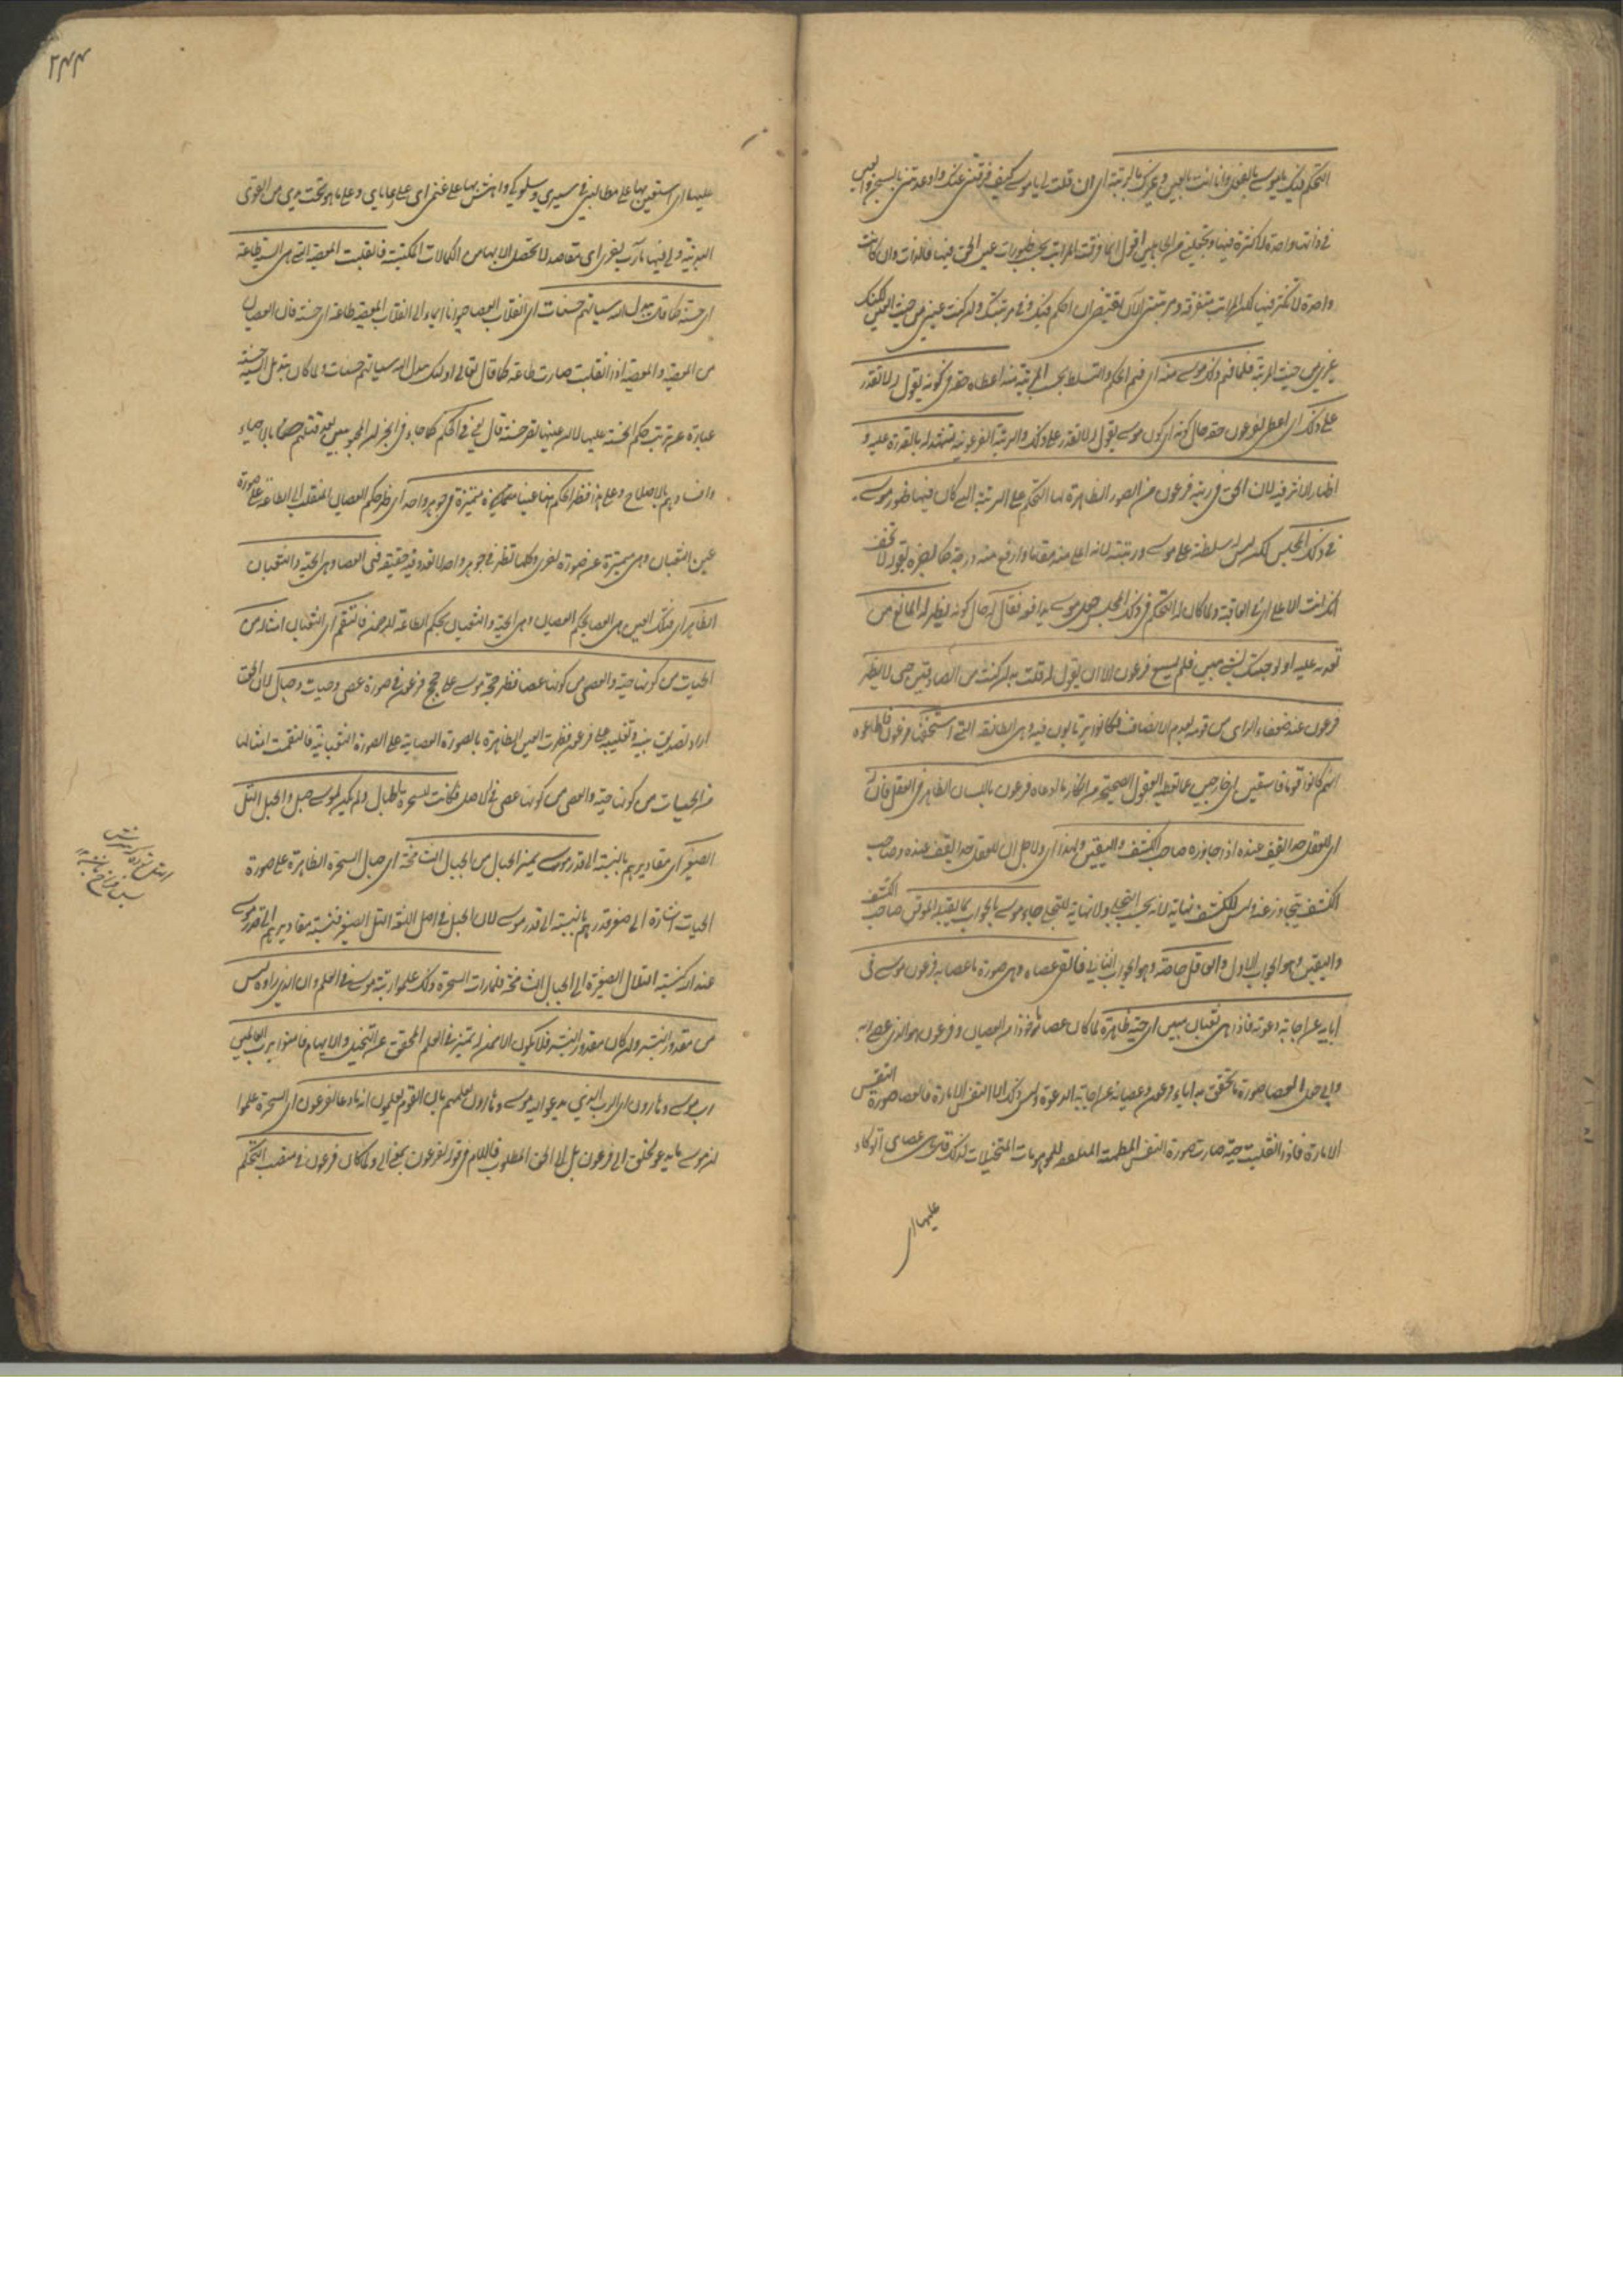 التحكم فيك يا موسى بالفعل وانا انت بالعين وغيرك بالرتبة اى ان قلت لى يا موسى كيف فرقتنى عنك واوعدتنى بالسجن والعين
فى ذاتها واحدة لا كثرة فيها وتجعلنى من الجاهلين اقول انما فرقت المراتب بحسب ظهورات عين الحق فيها فالذات وان كانت
واحدة لا تكثر فيها لكن المراتب متفرقة ومرتبتى الآن تقتضى ان احكم فيك وفى مرتبتك وان كنت عينى من حيث العين لكنك
غيرى من حيث المرتبة فلما فهم ذلك موسى منه اى فهم الحكم والتسلط بحسب المرتبة منه اعطاه حقه فى كونه يقول له لا تقدر
على ذلك اى اعطى لفرعون حقه حال كونه اى كون موسى يقول له لا تقدر على ذلك والرتبة الفرعونية تشهد له بالقدرة عليه و
اظهار الاثر فيه لان الحق فى رتبة فرعون من الصور الظاهرة لها التحكم على الرتبة التى كان فيها ظهور موسى
فى ذلك المجلس لكن ليس له سلطنة على موسى ورتبته لانه اعلى منه مقاما وارفع منه درجة كما اخبره بقوله لا تخف
انك انت الاعلى اى فى العاقبة ولما كان له التحكم فى ذلك المجلس جعل موسى يدافعه فقال له حال كونه يظهر له المانع من
تعديه عليه اولو جئتك بشىء مبين فلم يسع فرعون الا ان يقول له فأت به ان كنت من الصادقين حتى لا يظهر
فرعون عند ضعفاء الراى من قومه بعدم الانصاف فكانوا يرتابون فيه وهى الطائفة التى استخفها فرعون فاطاعوه
انهم كانوا قوما فاسقين اى خارجين عما تعطيه العقول الصحيحة من انكار ما ادعاه فرعون باللسان الظاهر فى العقل فان له
اى للعقل حدا يقف عنده اذا جاوزه صاحب الكشف واليقين ولهذا اى ولاجل ان للعقل حدا يقف عنده وصاحب
الكشف يتجاوز عنه وليس للكشف نهاية لانه بحسب التجلى ولا نهاية للتجلى جاء موسى بالجواب بما يقبله الموقن صاحب الكشف
واليقين وهو الجواب الاول والعاقل خاصة وهو الجواب الثانى فالقى عصاه وهى صورة ما عصى به فرعون موسى فى
ابايه عن اجابة دعوته فاذا هى ثعبان مبين اى حية ظاهرة لما كان عصا ماخوذا من العصيان وفرعون هو الذى عصى به
وابى جعل العصا صورة ما تحقق به اباء فرعون وعصيانه عن اجابة الدعوة وليس ذلك الا النفس الامارة فالعصا صورة النفس
الامارة فاذا انقلبت حية صارت صورة النفس المطمئنة للموهومات المتخيلات لذلك قال هى عصاى اتوكاء
عليها اى
٢٤٤
عليها اى استعين بها على مطالبى فى سيرى وسلوكى واهش بها على غنمى اى على رعاياى وعلى ما هو تحت يدى من القوى
البدنية ولى فيها مآرب اخرى اى مقاصد لا تحصل الا بها من الكمالات المكتسبة فانقلبت المعصية التى هى السيئة طاعة
اى حسنة كما قال يبدل الله سيئاتهم حسنات اى انقلاب العصا حيوانا ايماء الى انقلاب المعصية طاعة اى حسنة فان العصا
من المعصية والمعصية اذا انقلبت صارت طاعة كما قال تعالى اولئك يبدل الله سيئاتهم حسنات ولما كان تبديل السيئة حسنة
عبارة عن ترتب حكم الحسنة عليها لا ان عينها تصير حسنة قال يعنى فى الحكم كما جاء فى الخبر
بالاصلاح وعلى هذا فظهر الحكم ههنا عينا متميزة فى جوهر واحد اى ظهر حكم العصيان المنقلب الى الطاعة على صورة
عين الثعبان وهى متميزة عن صورة اخرى وكلها تظهر فى جوهر واحد لا تعدد فيه حقيقة فهى العصا وهى الحية والثعبان
الظاهر اى فتلك العين هى العصا بحكم العصيان وهى الحية والثعبان بحكم الطاعة للرحمن فالتقم اى الثعبان امثاله من
الحيات من كونها حية والعصى من كونها عصا فظهر حجة موسى على حجج فرعون فى صورة عصى وحيات وحبال لان الحق
اراد تصديق نبيه وتغليبه على فرعون فظهرت العين الظاهرة بالصورة العصائية على الصورة الثعبانية فالتقمت امثالها
من الحيات من كونها حية والعصى من كونها عصى فى الاصل فكانت للسحرة الحبال ولم يكن لموسى حبل والحبل التل
الصغير اى مقاديرهم بالنسبة الى قدر موسى بمنزلة الحبال من الجبال الشامخة اى حبال السحرة الظاهرة على صورة
الحيات اشارة الى صغر قدرهم بالنسبة الى قدر موسى لان الحبل فى اصل اللغة التل الصغير فنسبة مقاديرهم الى قدر موسى
عند الله كنسبة التلال الصغيرة الى الجبال الشامخة فلما رات السحرة ذلك علموا رتبة موسى فى العلم وان الذى راوه ليس
من مقدور البشر وان كان مقدور البشر فلا يكون الا ممن له تمييز فى العلم المحقق عن التخييل والايهام فامنوا برب العالمين
رب موسى وهارون اى الرب الذى يدعو اليه موسى وهارون لعلمهم بان القوم يعلمون انه ما دعا لفرعون اى السحرة علموا
ان موسى ما يدعو الخلق الى فرعون بل الى الحق المطلوب فاللام فى قوله لفرعون بمعنى الى ولما كان فرعون فى منصب التحكم